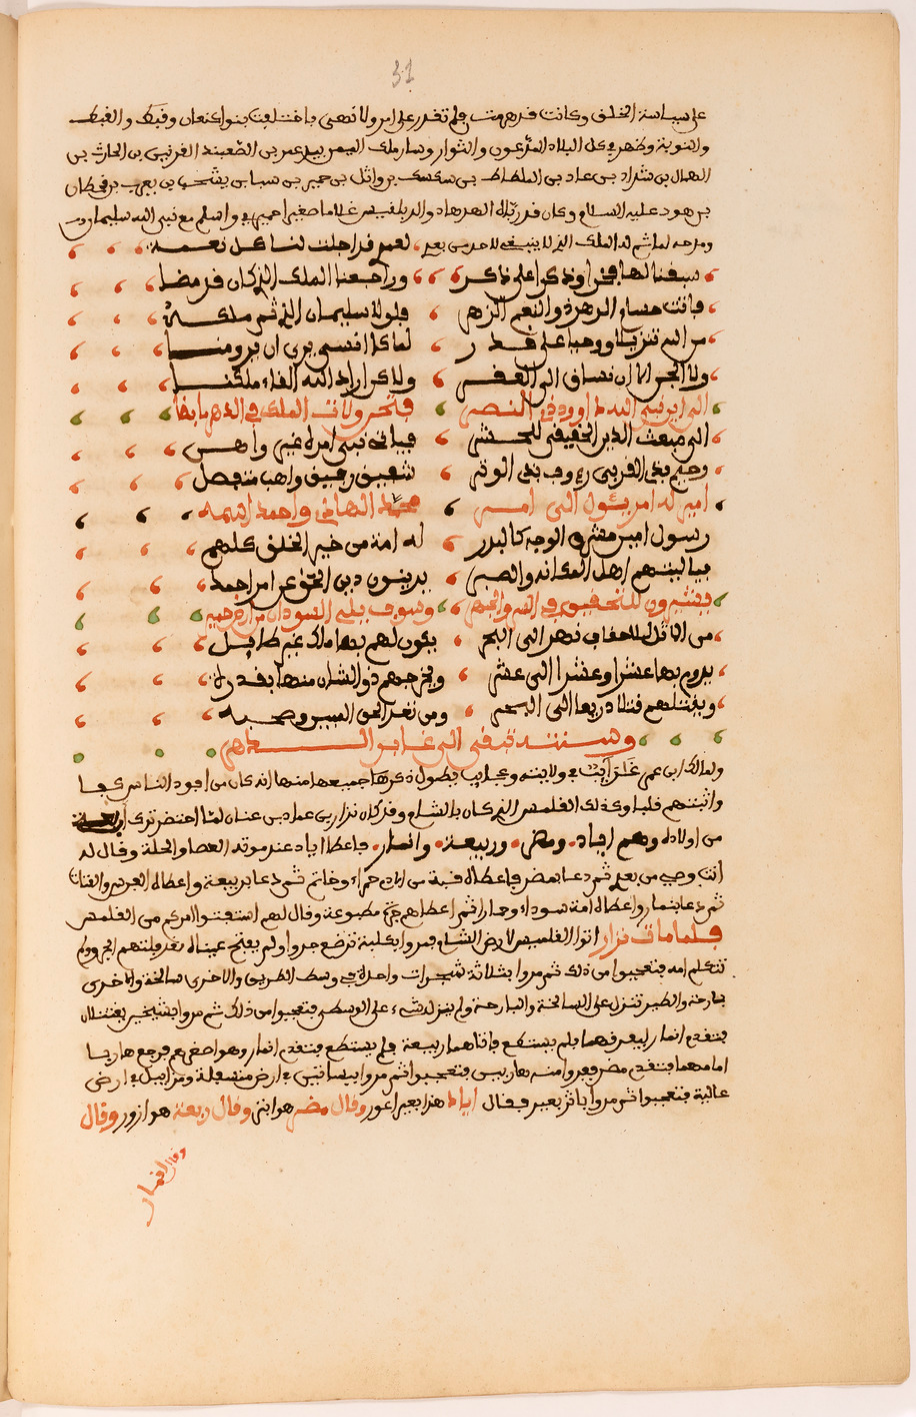 31
على سياسة الخلق وكانت قد هرمت فلم تقدر على امر ولا نهى فاختلفت بنو كنعان وقبط والقبط
والنوبة وظهر في كل البلاد المدّعون والثوار وسار ملك اليمن بيد عمر بن الصعبند القرنين بن الحارث بن
الهمال بن شداد بن عاد بن الملطاط بن سكسك بن واثل بن حمير بن سبا بن يشجب بن يعرب بن قحطان
بن هود عليه السلام وكان قد ربّاه الهدهاد والد بلقيس غلاما صغيرا حميري واسلم مع نبى الله سليمان
ومدحه لما شم له الملك الذى لا ينبغى لاحد من بعده لعمر قد اجلت لنا كل نعمة
سبقنا لها فخرا وذكرا على ذكر وراجعنا الملك الذى كان قد مضا
فانت حسام الدهر ذو النعم الزهر فلولا سليمان الذى ثم ملكه
من الله تنزيلا ووحيا على قدر لما كا انسى يرى ان يرومنا
ولا الجن الا ان نساق الى القفر ولاكن اراد الله القاء ملكنا
الى ابن نبى الله داوود فى النصر فنحن ولات الملك فى الدهم باتفا
الى مبعث الدين الحقيقى للحشر فياتى نبى امره غير واهن
رحيم بذى القربى رءوف بذى الوتر شفيق رفيق واهب متفصل
امير له امر يئول الى امر محمد الهادى واحمد اسمه
رسول امين مشرق الوجه كالبدر له امة من خير الخلق كلهم
فيا ليتهم اهل المكانه والصبر يدينون دين الحق عن امر احمد
وسوف يلى السودان من ارض حمير
من الاقلال للاحقاف نهر الى البحر يكون لهم بها ملك غير طايل
يدوم بها عشرا وعشرا الى عشر ويخرجهم ذو الشان منها بقدرة
ويقتلهم قتلا ذريعا الى البحر ومن بعد الحق المبين وصحبه
ولمالك ابن عمر غرايب فى ولايته وعجايب يطول ذكرها جميعها منها انه كان من اجود الناس كفا
واثبتهم قلبا وكذلك القلمس الذى كان بالشام وقد كان نزار بن عماد بن عنان لمّا احتضر ترى اربعة
من اولاده وهم اياد ومضر وربيعة وانمار فاعطا اياد عند موته العصا والحلة وقال له
انت وصى من بعدى ثم دعا بمضر فاعطاه قبة من ادم حمراء وخاتم ثم دعا بربيعة واعطاه الفرس والقناة
ثم دعا بنمار واعطاه امة سوداء وحمارا ثم اعطاهم جرة مطبوعة وقال لهم استفتوا امركم من القلمس
فلما مات نزار اتوا القلمس لارض الشام فمروا بكلبة ترضع جروا ولم يفتح عيناه بعد فلتهم الجرو ولم
تتكلم امه فتعجبوا من ذلك ثم مروا بثلاثة شجرات واحدة فى وسط الطريق والاخرى سانحة والاخرى
بارحة والطير تنزل على السانحة والبارحة ولم ينزل شىء على الوسطى فتعجبوا من ذلك ثم مروا بشيخين يقتتلان
فتقدم انمار ليفرقهما فلم يستطع فاتاهما ربيعة فلم يستطع فتقدم انمار وهو اصغرهم فرجع هاربا
امامهما فتقدم مضر ففروا منه هاربين فتعجبوا ثم مروا ببساتين فى ارض متسفلة ومزابل فى ارض
عالية فتعجبوا ثم مروا باثر بعير فقال اياد هذا بعير اعور وقال مضر هو ابتر وقال ربيعة هو ازور وقال
وقال انمار